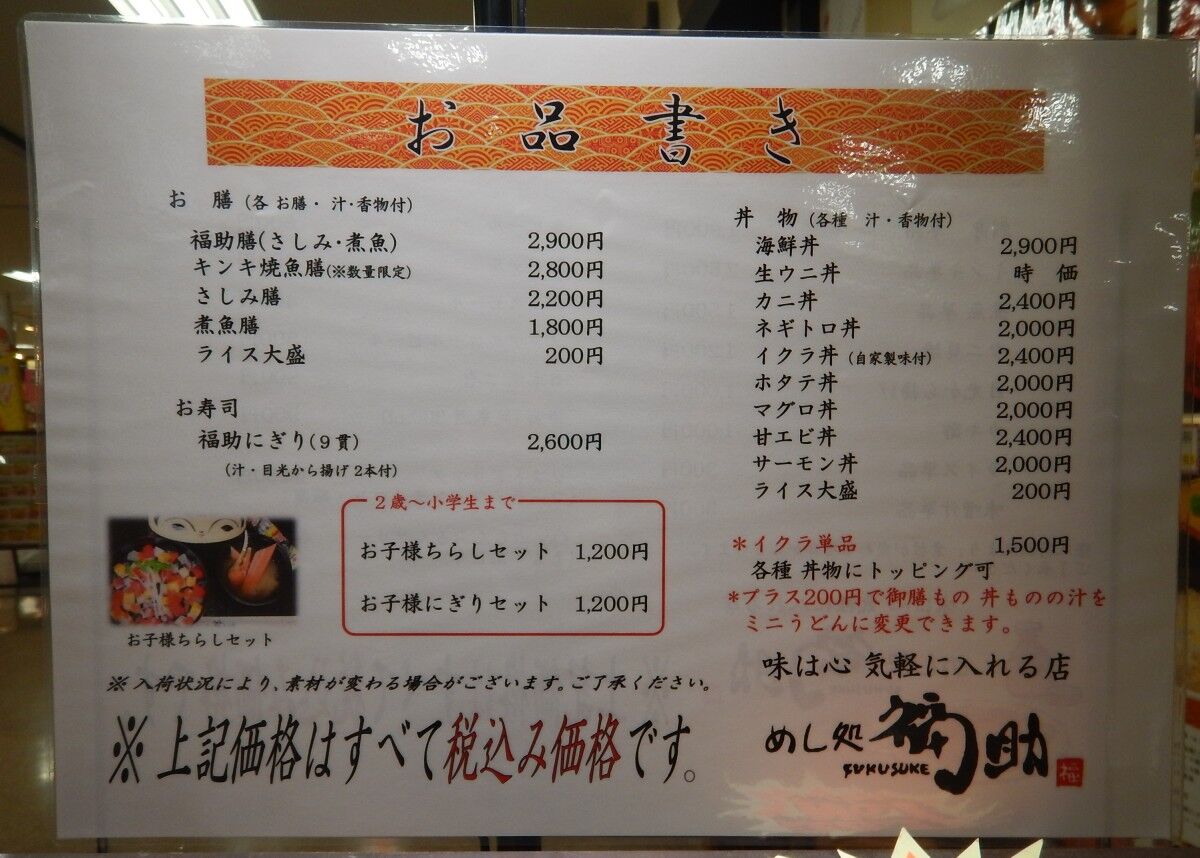 お品書き
お 膳 (各 お膳・ 汁・香物付)
福助膳(さしみ・煮魚) 2,900円
キンキ焼魚膳(※数量限定) 2,800円
さしみ膳 2,200円
煮魚膳 1,800円
ライス大盛 200円
お寿司
福助にぎり(9貫) 2,600円
(汁・目光から揚げ 2本付)
2歳～小学生まで
お子様ちらしセット 1,200円
お子様にぎりセット 1,200円
お子様ちらしセット
丼 物 (各種 汁・香物付)
海鮮丼 2,900円
生ウニ丼 時 価
カニ丼 2,400円
ネギトロ丼 2,000円
イクラ丼 (自家製味付) 2,400円
ホタテ丼 2,000円
マグロ丼 2,000円
甘エビ丼 2,400円
サーモン丼 2,000円
ライス大盛 200円
＊イクラ単品 1,500円
各種 丼物にトッピング可
＊プラス200円で御膳もの 丼ものの汁を
ミニうどんに変更できます。
※ 入荷状況により、素材が変わる場合がございます。ご了承ください。
※ 上記価格はすべて税込み価格です。
味は心 気軽に入れる店
めし処 福助
FUKUSUKE
福